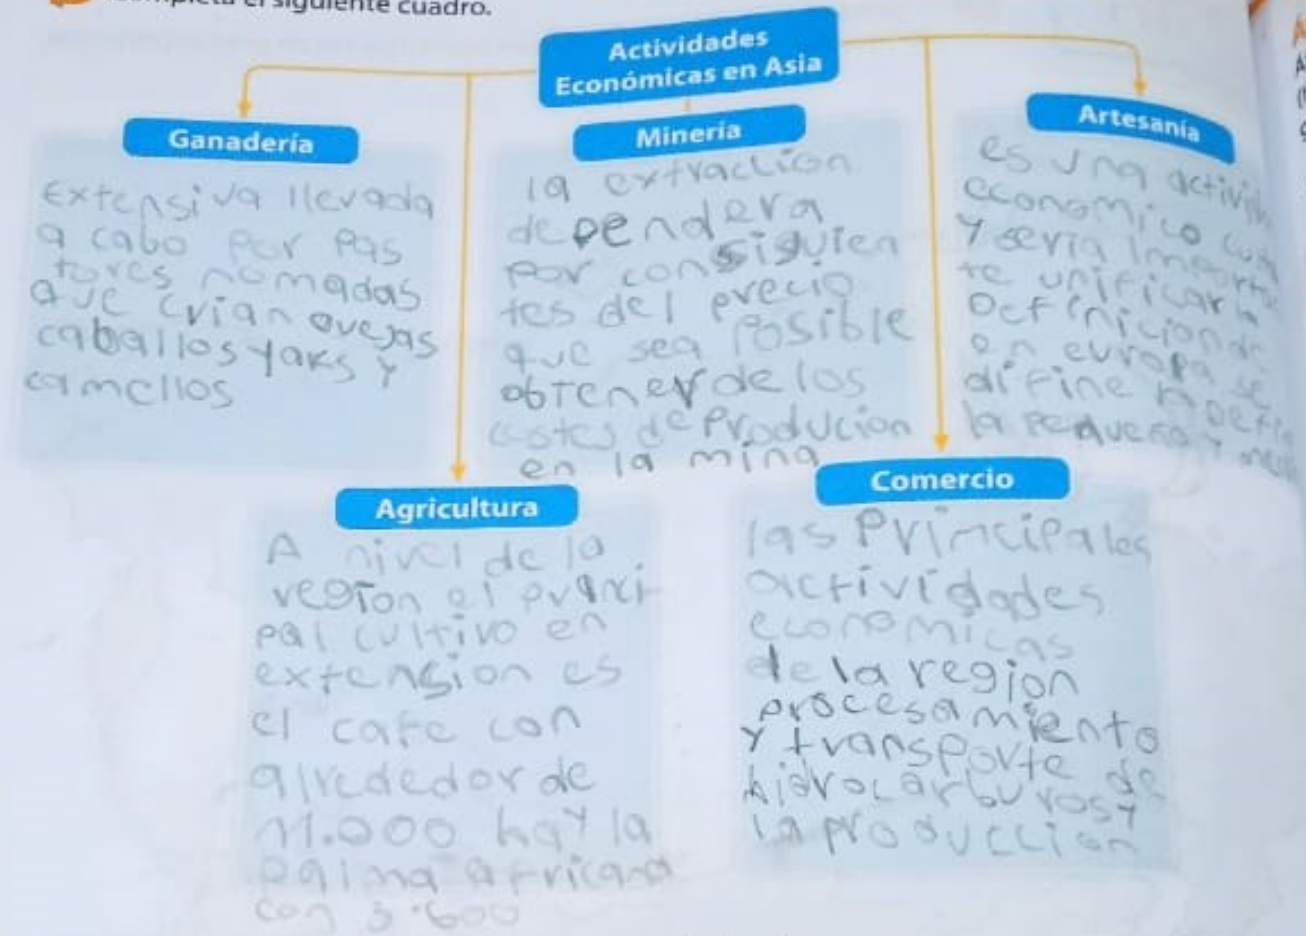 el siguiente cuadro.
Actividades
Económicas en Asia
Ganadería
Extensiva llevada
a cabo por pas
tores nomadas
que crian ovejas
caballos yaks y
camellos
Minería
la extraccion
dependera
por consiguien
tes del precio
que sea posible
obtener de los
costes de producion
en la mina
Artesanía
es una activi
economico con
y seria importa
te unificar la
Definicion de
en europa se
difine
la pequeña y
Agricultura
A nivel de la
region el princi
pal cultivo en
extension es
el cafe con
alrededor de
11.000 hay la
palma africana
con 3.600
Comercio
las principales
actividades
economicas
de la region
procesamiento
y transporte de
hidrocarburos y
la producción